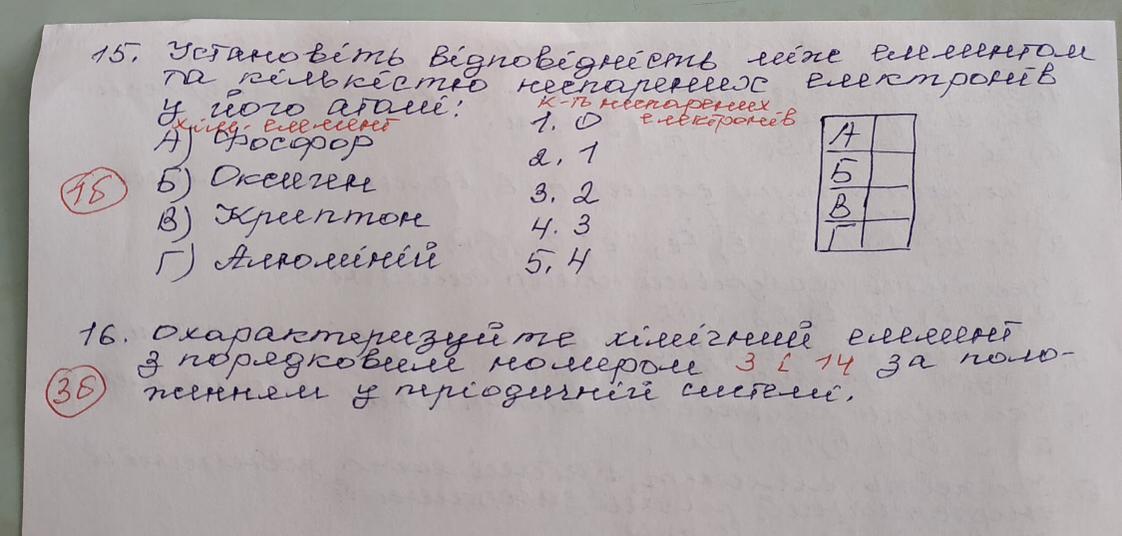 15. Установіть відповідність між елементом
та кількістю неспарених електронів
у його атомі:
к-ть неспарених
електронів
хіміч. елемент
А) Фосфор
Б) Оксиген
В) Криптон
Г) Алюміній
1. 0
2. 1
3. 2
4. 3
5. 4
А
Б
В
Г
1б
16. Охарактеризуйте хімічний елемент
з порядковим номером 3 і 14 за поло-
женням у періодичній системі.
3б